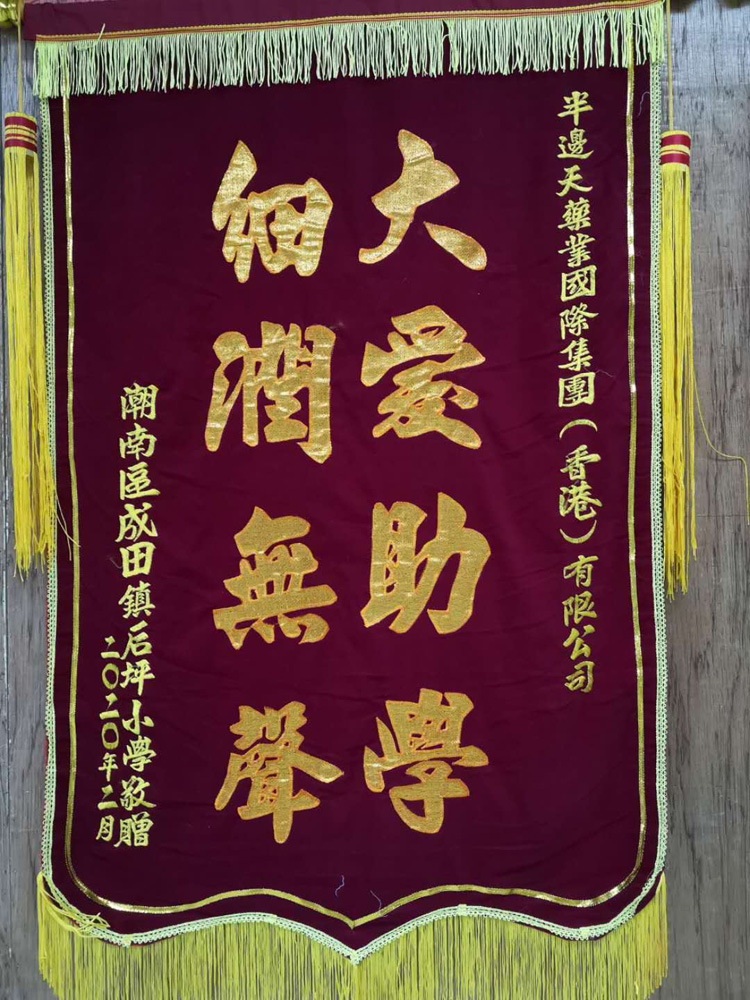 半邊天藥業國際集團（香港）有限公司
大愛助學
細潤無聲
潮南區成田鎮后坪小學敬贈
二〇二〇年二月